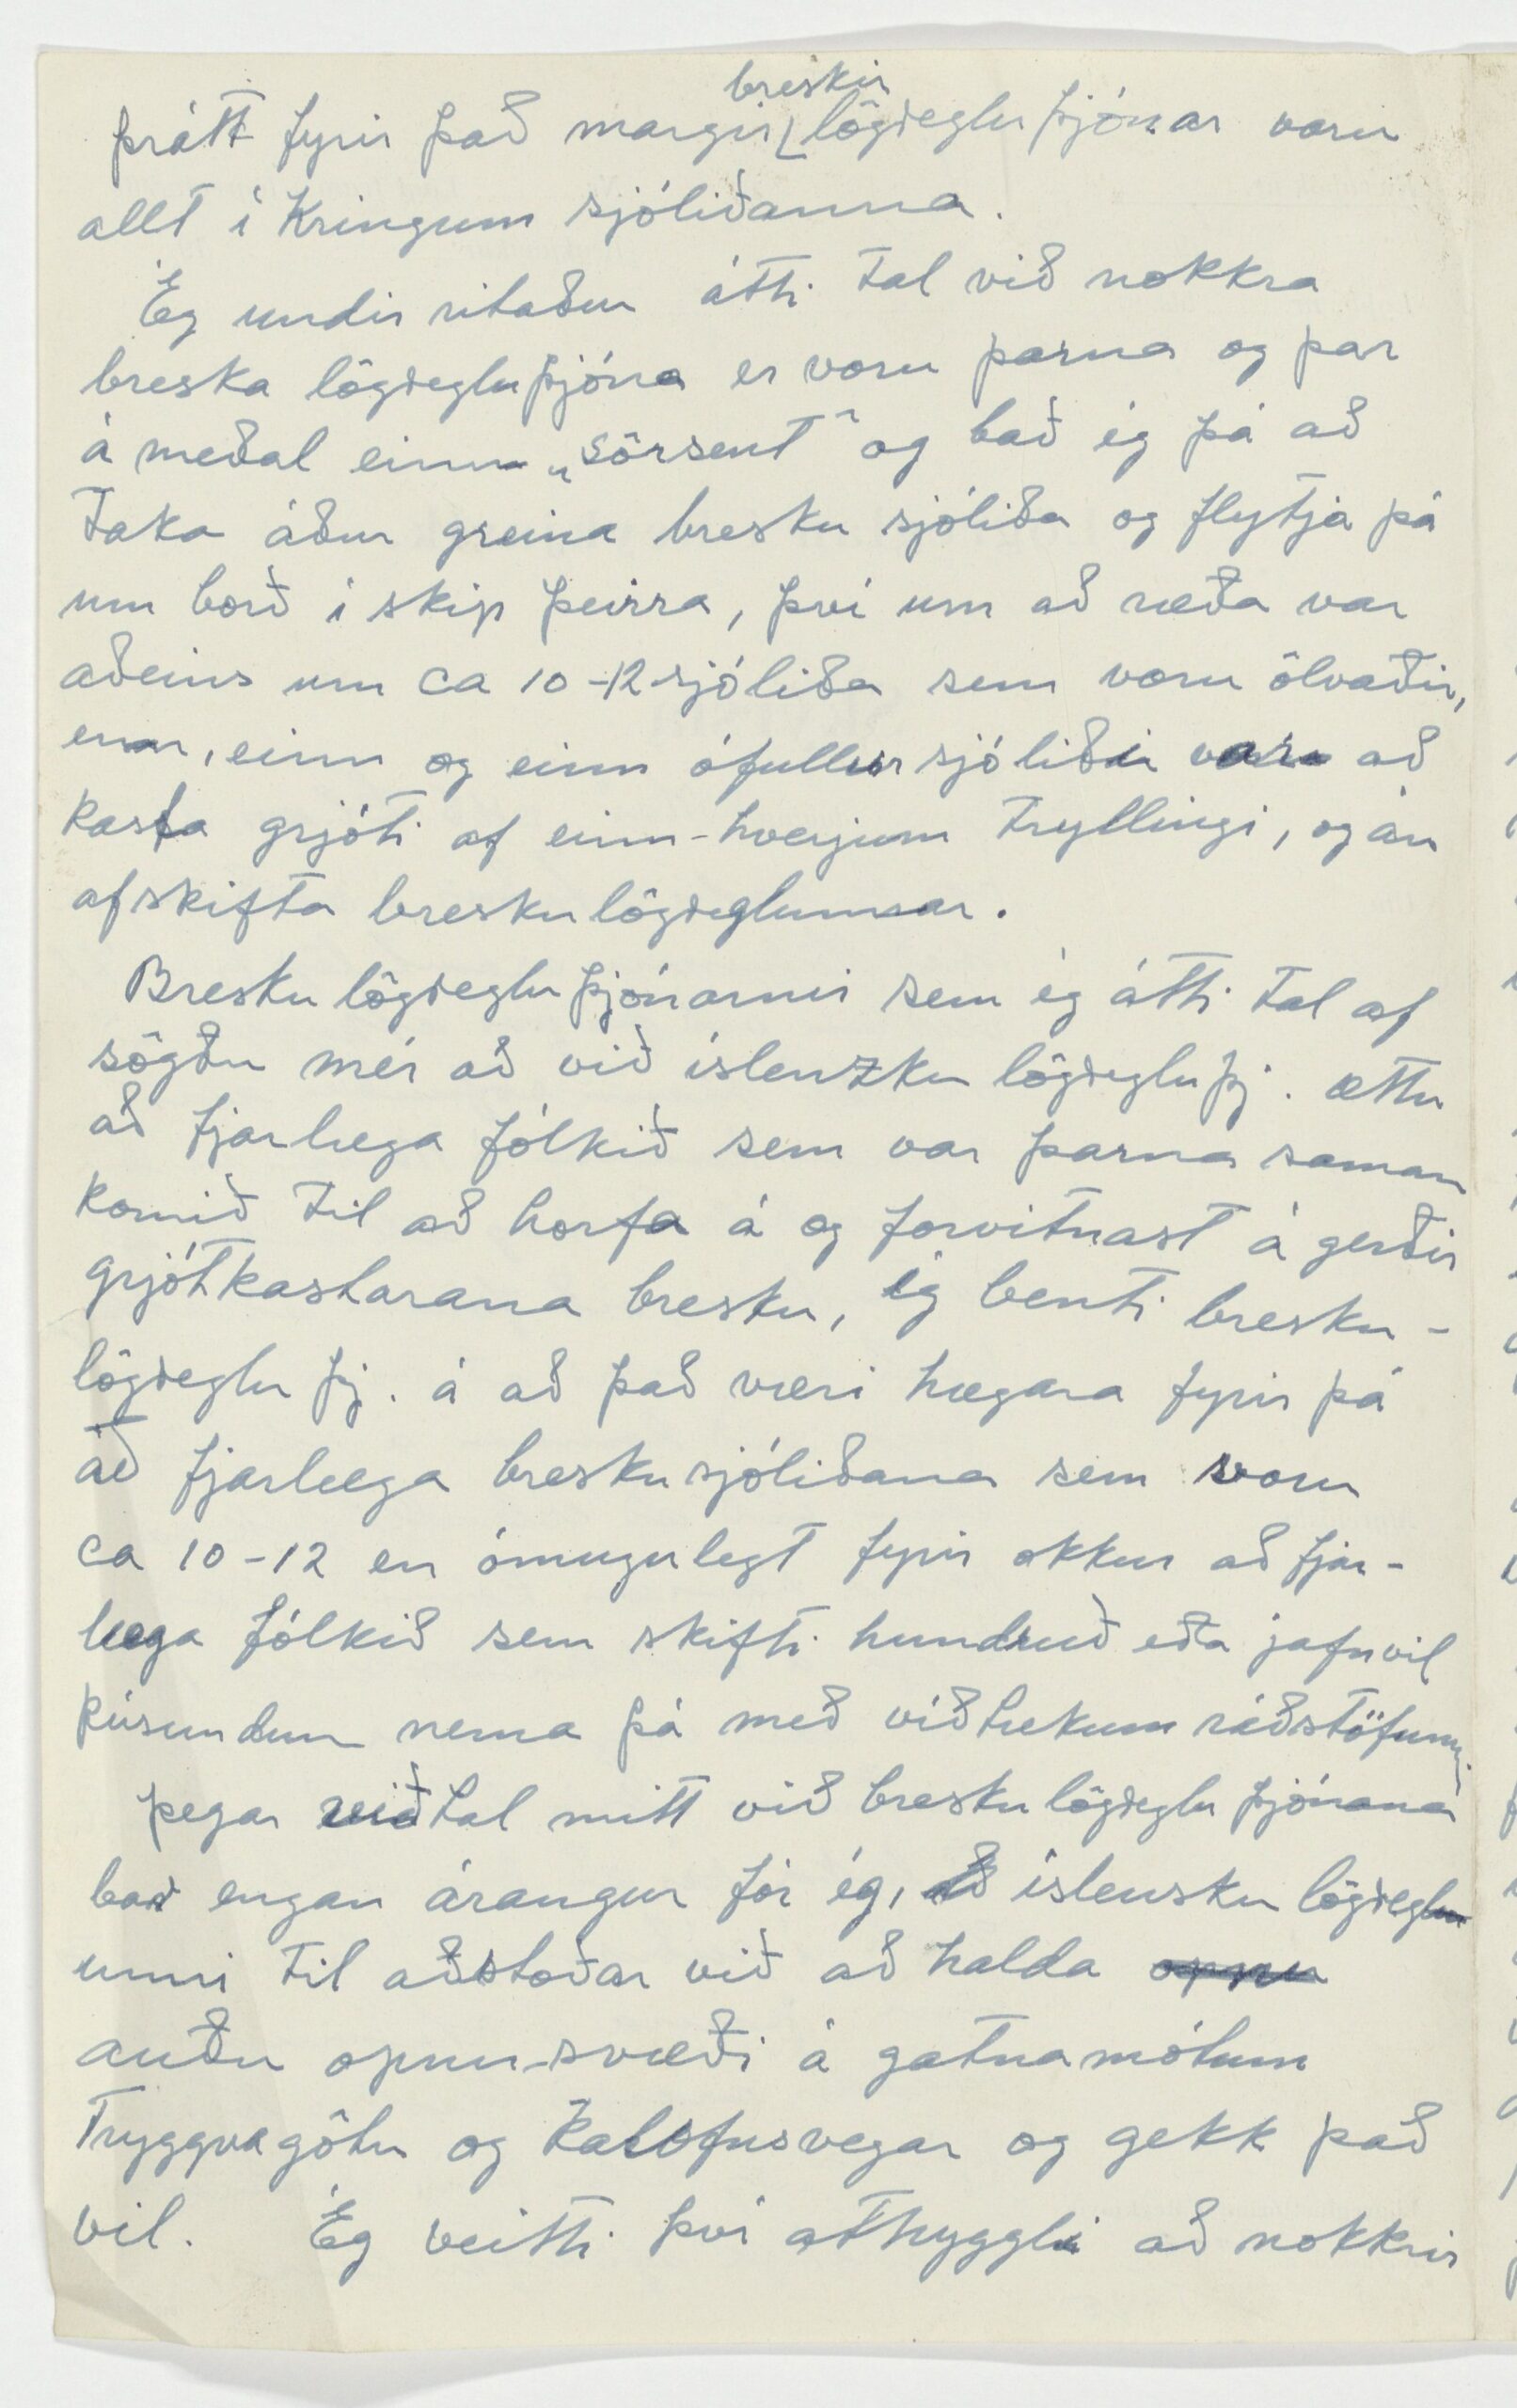 breskir
þrátt fyrir það margir lögregluþjónar voru
allt í kringum sjóliðanna.
Ég undir ritaður átti tal við nokkra
breska lögregluþjóna er voru þarna og þar
á meðal einn „sörsent" og bað ég þá að
taka áður greina bresku sjóliða og flytja þá
um borð í skip þeirra, því um að ræða var
aðeins um ca 10-12 sjóliða sem voru ölvaðir,
enn, einn og einn ófullur sjóliði var að
kasta grjóti af einn-hverjum tryllingi, og án
afskifta bresku lögreglunnar.
Bresku lögregluþjónarnir sem ég átti tal af
sögðu mér að við íslenzku lögregluþj. ættu
að fjarlæga fólkið sem var þarna saman
komið til að horfa á og forvitnast á gerðir
grjótkastarana bresku, ég benti bresku-
lögregluþj. á að það væri hægara fyrir þá
að fjarlæga bresku sjóliðana sem voru
ca 10-12 en ómugulegt fyrir okkur að fjar-
læga fólkið sem skifti hundruð eða jafnvil
þúsundum nema þá með víðtækum ráðstöfunum.
þegar viðtal mitt við bresku lögregluþjónana
bar engan árangur fór ég, íslensku lögreglu
unni til aðstoðar við að halda opnu
auðu opnu-svæði á gatnamótum
Tryggvagötu og Kalkofnsvegar og gekk það
vil. Ég veitti því athyggli að nokkrir